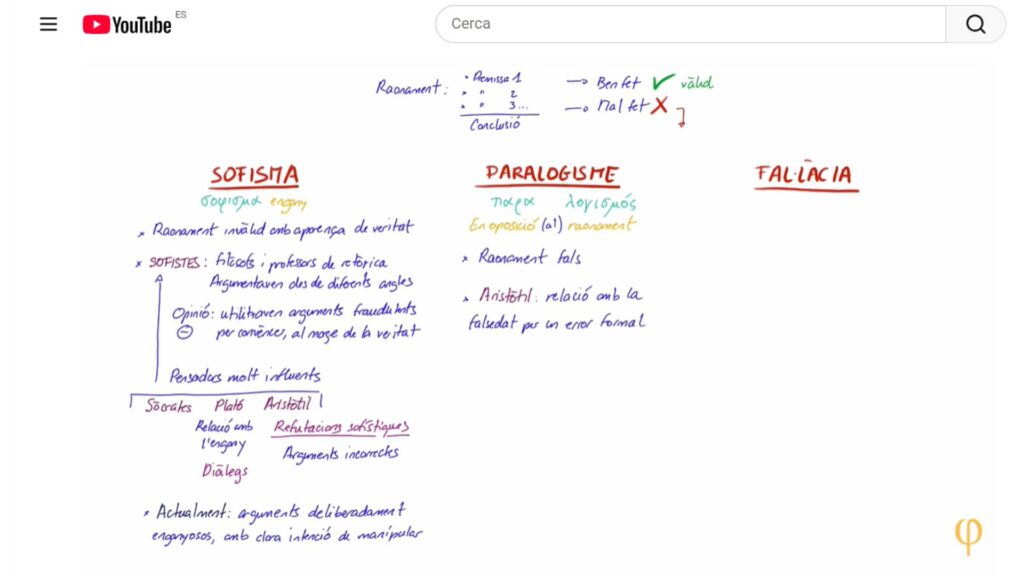 YouTube ES
Cerca
Raonament:
• Premissa 1
• " 2
• " 3...
Conclusió
→ Ben fet ✓ vàlid
→ Mal fet X
SOFISMA
σοφισμα engany
× Raonament invàlid amb aparença de veritat
× SOFISTES: Filòsofs i professors de retòrica
Argumentaven des de diferents angles
Opinió: utilitzaven arguments fraudulents
⊖ per convèncer, al marge de la veritat
Pensadors molt influents
Sòcrates Plató Aristòtil
Relació amb
l'engany
Diàlegs
Refutacions sofístiques
Arguments incorrectes
× Actualment: arguments deliberadament
enganyosos, amb clara intenció de manipular
PARALOGISME
παρα λογισμός
En oposició (al) raonament
× Raonament fals
× Aristòtil: relació amb la
falsedat per un error formal
FAL·LÀCIA
φ